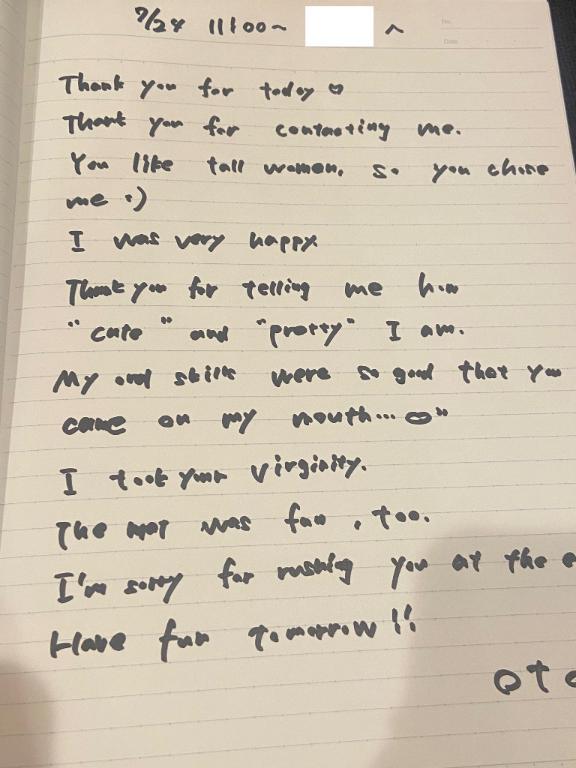 7/24 11:00~ へ
No.
Date
Thank you for today ♡
Thank you for contacting me.
You like tall women, so you chose
me :)
I was very happy
Thank you for telling me how
"cute" and "pretty" I am.
My oral skills were so good that you
came on my mouth...
I took your virginity.
The mat was fun, too.
I'm sorry for rushing you at the e
Have fun tomorrow!!